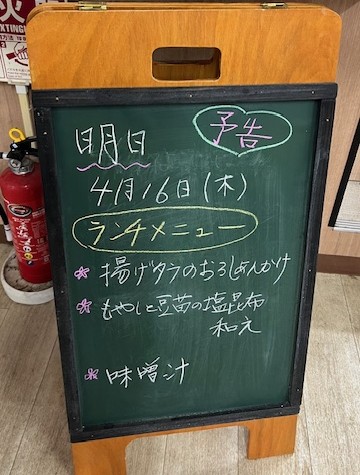 火
EXTINGUI
予告
明日
4月16日(木)
ランチメニュー
揚げタラのおろしあんかけ
もやしと豆苗の塩昆布
和え
味噌汁